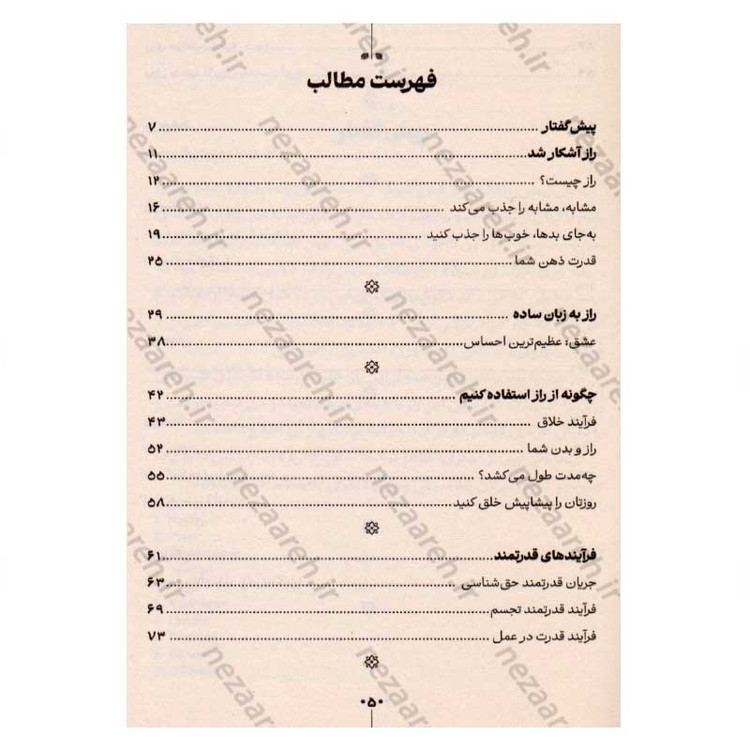 فهرست مطالب
پیش‌گفتار ........ ۷
راز آشکار شد ........ ۱۱
راز چیست؟ ........ ۱۲
مشابه، مشابه را جذب می‌کند ........ ۱۶
به‌جای بدها، خوب‌ها را جذب کنید ........ ۱۹
قدرت ذهن شما ........ ۲۵
راز به زبان ساده ........ ۲۹
عشق؛ عظیم‌ترین احساس ........ ۳۸
چگونه از راز استفاده کنیم ........ ۴۲
فرآیند خلاق ........ ۴۳
راز و بدن شما ........ ۵۲
چه‌مدت طول می‌کشد؟ ........ ۵۵
روزتان را پیشاپیش خلق کنید ........ ۵۸
فرآیندهای قدرتمند ........ ۶۱
جریان قدرتمند حق‌شناسی ........ ۶۳
فرآیند قدرتمند تجسم ........ ۶۹
فرآیند قدرت در عمل ........ ۷۳
۰۵۰
nezaareh.ir